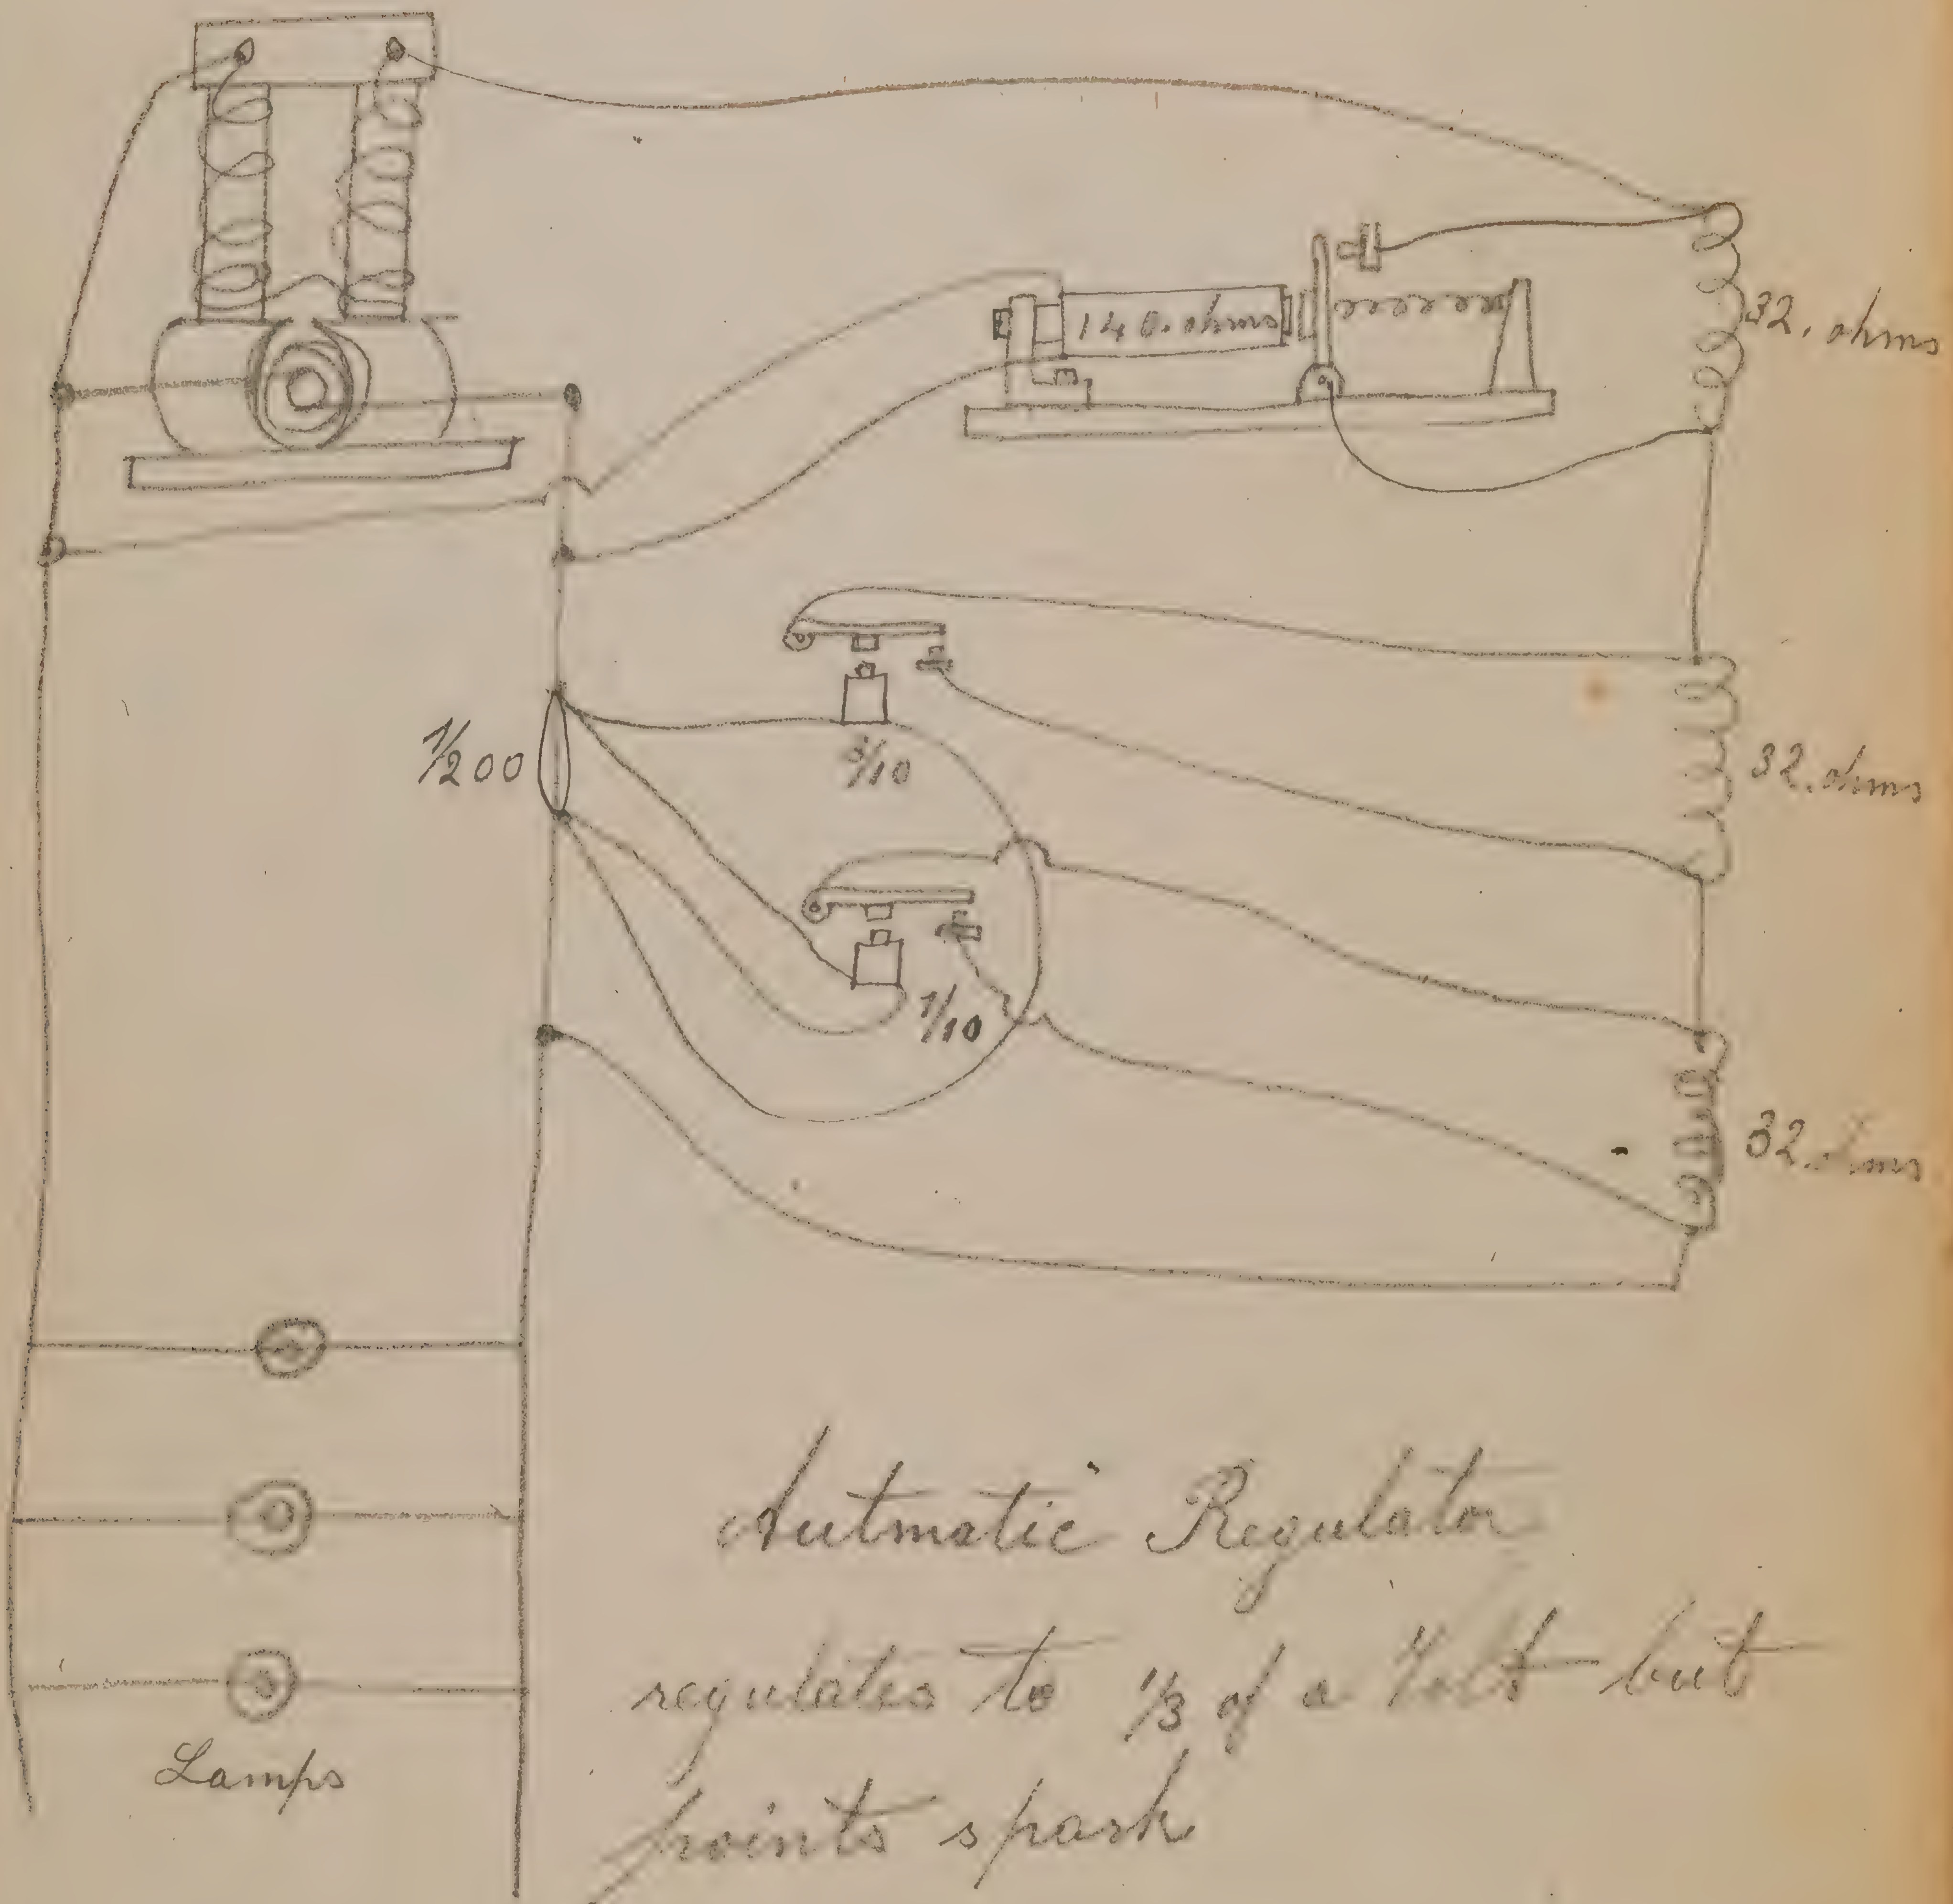 140. ohms
32. ohms
1/200
/10
32. ohms
1/10
32. ohms
Autmatic Regulator
regulates to 1/3 of a Volt but
points spark
Lamps